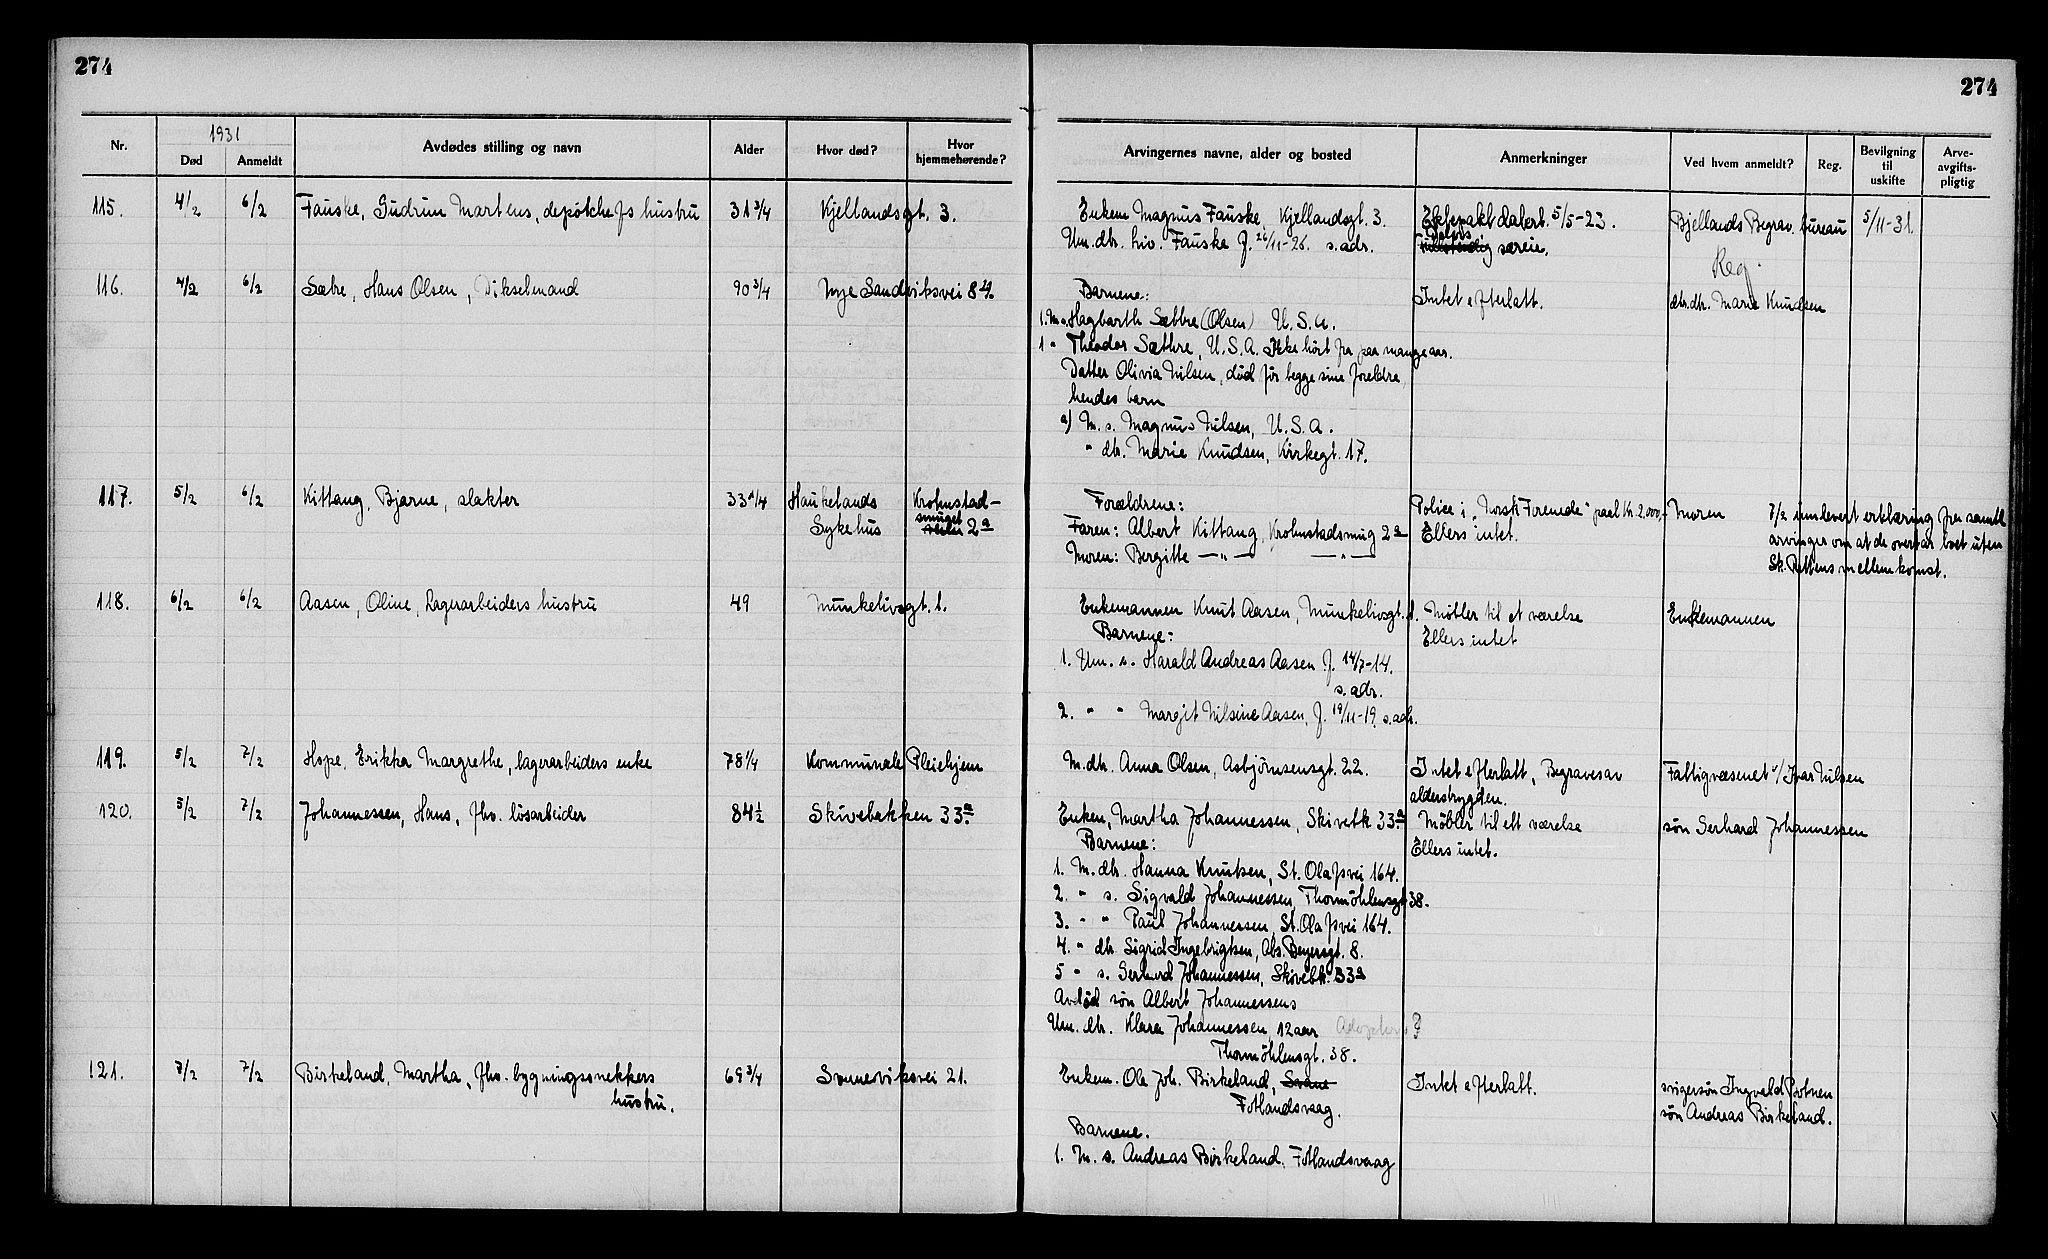 274
274
Nr.
1931
Død
Anmeldt
Avdødes stilling og navn
Alder
Hvor død?
Hvor hjemmehørende?
Arvingernes navne, alder og bosted
Anmerkninger
Ved hvem anmeldt?
Reg.
Bevilgning til uskifte
Arve-avgifts-pligtig
115. 4/2 6/2 Fauske, Gudrun Martens, depotchefs hustru 31 3/4 Kjellandsgt. 3.
Enkem Magnus Fauske, Kjellandsgt. 3. Ektepakt datert. 5/5-23. Bjellands Begrav. bureau 5/11-31.
Um. dtr. Liv. Fauske f. 26/11-26. s. adr. særeie.
Reg.
116. 4/2 6/2 Sæbre, Hans Olsen, Dikselmand 90 3/4 Nye Sandviksvei 84.
Barnene: Intet efterlatt. dtr. dtr. Marie Knudsen
1. M. s. Hagbarth Sæthre (Olsen) U. S. A.
1 " Theodor Sæthre, U.S.A. Ikke hört fra paa mange aar.
Datter Olivia Nilsen, død för begge sine foreldre,
hendes barn
a) M. s. Magnus Nilsen, U. S. A.
" dtr. Marie Knudsen, Kirkegt. 17.
117. 5/2 6/2 Kittang, Bjarne, slakter 33 1/4 Haukelands Sykehus Krohnstad-
smuget 2a
Foreldrene: Police i "Norsk Forenede" paal Kr. 2.000,- Moren 7/2 innlevert erklæring fra samtl
Faren: Albert Kittang, Krohnstadsmug 2a Ellers intet. arvinger om at de overtar boet uten
Moren: Bergitte —"— —"— Sk. Rettens mellemkomst.
118. 6/2 6/2 Aasen, Oline, Lagerarbeiders hustru 49 Munkelivsgt. 1.
Enkemannen Knut Aasen, Munkelivsgt. 1. Møbler til et værelse Enkemannen
Barnene: Ellers intet
1. Um. s. Harald Andreas Aasen f. 14/7-14.
s. adr.
2. " " Margit Nilsine Aasen, f. 19/11-19. s. adr.
119. 5/2 7/2 Hope, Erikka Margrethe, lagerarbeiders enke 78 1/4 Kommunale Pleiehjem
M. dtr. Anna Olsen, Asbjörnsensgt. 22. Intet efterlatt, Begravesav Fattigvæsenet v/ Ivar Nilsen
alderstrygden.
120. 5/2 7/2 Johannessen, Hans, fhv. lösarbeider 84 1/2 Skivebakken 33a
Enken, Martha Johannessen, Skivebk 33a Møbler til ett værelse sön Gerhard Johannessen
Barnene: Ellers intet.
1. M. dtr. Hanna Knutsen, St. Olafsvei 164.
2. " s. Sigvald Johannessen, Thormöhlensgt 38.
3. " " Paul Johannessen, St. Olafsvei 164.
4. " dtr. Sigrid Ingebrigtsen, Abs. Beyersgt. 8.
5 " s. Gerhard Johannessen, Skivebk. 33a
Avdöd sön Albert Johannessens
Um. dtr. Klara Johannessen, 12 aar
Thormöhlensgt. 38.
121. 7/2 7/2 Birkeland, Martha, fhv. bygningssnekkers 69 3/4 Svineviksvei 21.
hustru.
Enkem. Ole Joh. Birkeland, Intet efterlatt. svigersön Ingvald
Fotlandsvaag. sön Andreas Birkeland.
Barnene.
1. M. s. Andreas Birkeland, Fotlandsvaag